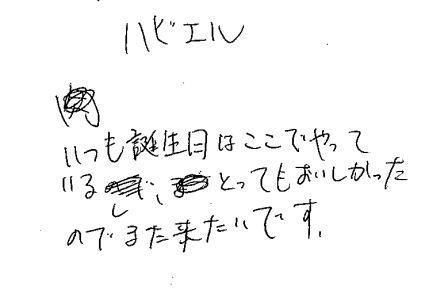 ハビエル
いつも誕生日はここでやって
いるし、とってもおいしかった
のでまた来たいです。